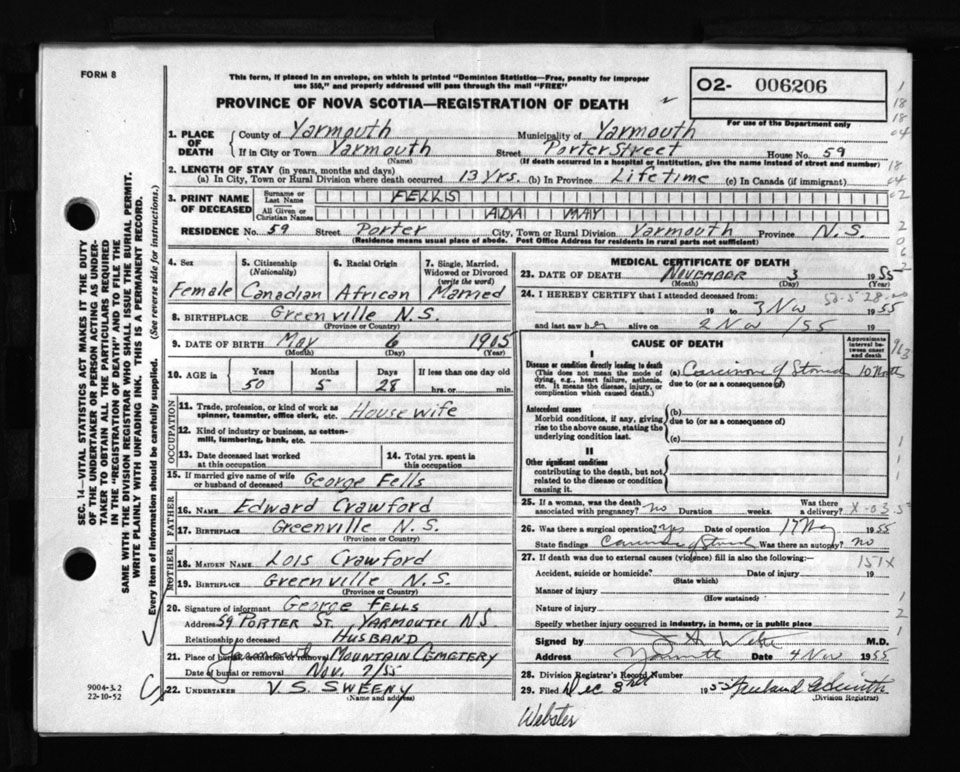 FORM 8
This form, if placed in an envelope, on which is printed "Dominion Statistics—Free, penalty for improper
use $50," and properly addressed will pass through the mail "FREE"
PROVINCE OF NOVA SCOTIA—REGISTRATION OF DEATH
02- 006206
For use of the Department only
1. PLACE OF DEATH
County of Yarmouth Municipality of Yarmouth
If in City or Town Yarmouth Street Porter Street House No. 59
(Name) (If death occurred in a hospital or institution, give the name instead of street and number)
2. LENGTH OF STAY (in years, months and days)
(a) In City, Town or Rural Division where death occurred 13 Yrs. (b) In Province Lifetime (c) In Canada (if immigrant)
3. PRINT NAME OF DECEASED
Surname or Last Name FELLS
All Given or Christian Names ADA MAY
RESIDENCE No. 59 Street Porter City, Town or Rural Division Yarmouth Province N.S.
(Residence means usual place of abode. Post Office Address for residents in rural parts not sufficient)
4. Sex
Female
5. Citizenship (Nationality)
Canadian
6. Racial Origin
African
7. Single, Married, Widowed or Divorced (write the word)
Married
8. BIRTHPLACE Greenville N.S.
(Province or Country)
9. DATE OF BIRTH May 6 1905
(Month) (Day) (Year)
10. AGE in Years Months Days If less than one day old
50 5 28 hrs. or min.
OCCUPATION
11. Trade, profession, or kind of work as spinner, teamster, office clerk, etc. Housewife
12. Kind of industry or business, as cotton-mill, lumbering, bank, etc.
13. Date deceased last worked at this occupation
14. Total yrs. spent in this occupation
15. If married give name of wife or husband of deceased George Fells
FATHER
16. Name Edward Crawford
17. Birthplace Greenville N.S.
(Province or Country)
MOTHER
18. Maiden Name Lois Crawford
19. Birthplace Greenville N.S.
(Province or Country)
20. Signature of informant George Fells
Address 59 PORTER ST. YARMOUTH NS
Relationship to deceased HUSBAND
21. Place of burial, cremation or removal Yarmouth MOUNTAIN CEMETERY
Date of burial or removal NOV. 7/55
22. UNDERTAKER V. S. SWEENY
(Name and address)
MEDICAL CERTIFICATE OF DEATH
23. DATE OF DEATH NOVEMBER 3 1955
(Month) (Day) (Year)
24. I HEREBY CERTIFY that I attended deceased from:
19 to 3 Nov 1955
and last saw her alive on 2 Nov /55 19
CAUSE OF DEATH
Approximate interval between onset and death
I
Disease or condition directly leading to death
(This does not mean the mode of dying, e.g., heart failure, asthenia, etc. It means the disease, injury, or complication which caused death.)
(a) Carcinoma of Stomach 10 Month
due to (or as a consequence of)
Antecedent causes
Morbid conditions, if any, giving rise to the above cause, stating the underlying condition last.
(b)
due to (or as a consequence of)
(c)
II
Other significant conditions
contributing to the death, but not related to the disease or condition causing it.
25. If a woman, was the death associated with pregnancy? no Duration weeks. Was there a delivery?
X-035
26. Was there a surgical operation? yes Date of operation 17 May 1955
State findings Carcinoma of Stomach Was there an autopsy? no
27. If death was due to external causes (violence) fill in also the following:
151X
Accident, suicide or homicide? Date of injury 19
(State which)
Manner of injury
(How sustained)
Nature of injury
Specify whether injury occurred in industry, in home, or in public place
Signed by M.D.
Address Yarmouth Date 4 Nov 1955
28. Division Registrar's Record Number
29. Filed Dec 3rd 1955
(Division Registrar)
Webster
SEC. 14—VITAL STATISTICS ACT MAKES IT THE DUTY
OF THE UNDERTAKER OR PERSON ACTING AS UNDER-
TAKER TO OBTAIN ALL THE PARTICULARS REQUIRED
IN THE "REGISTRATION OF DEATH" AND TO FILE THE
SAME WITH THE DIVISION REGISTRAR WHO SHALL ISSUE THE BURIAL PERMIT.
WRITE PLAINLY WITH UNFADING INK. THIS IS A PERMANENT RECORD.
Every item of information should be carefully supplied. (See reverse side for instructions.)
9004-3.2
22-10-52